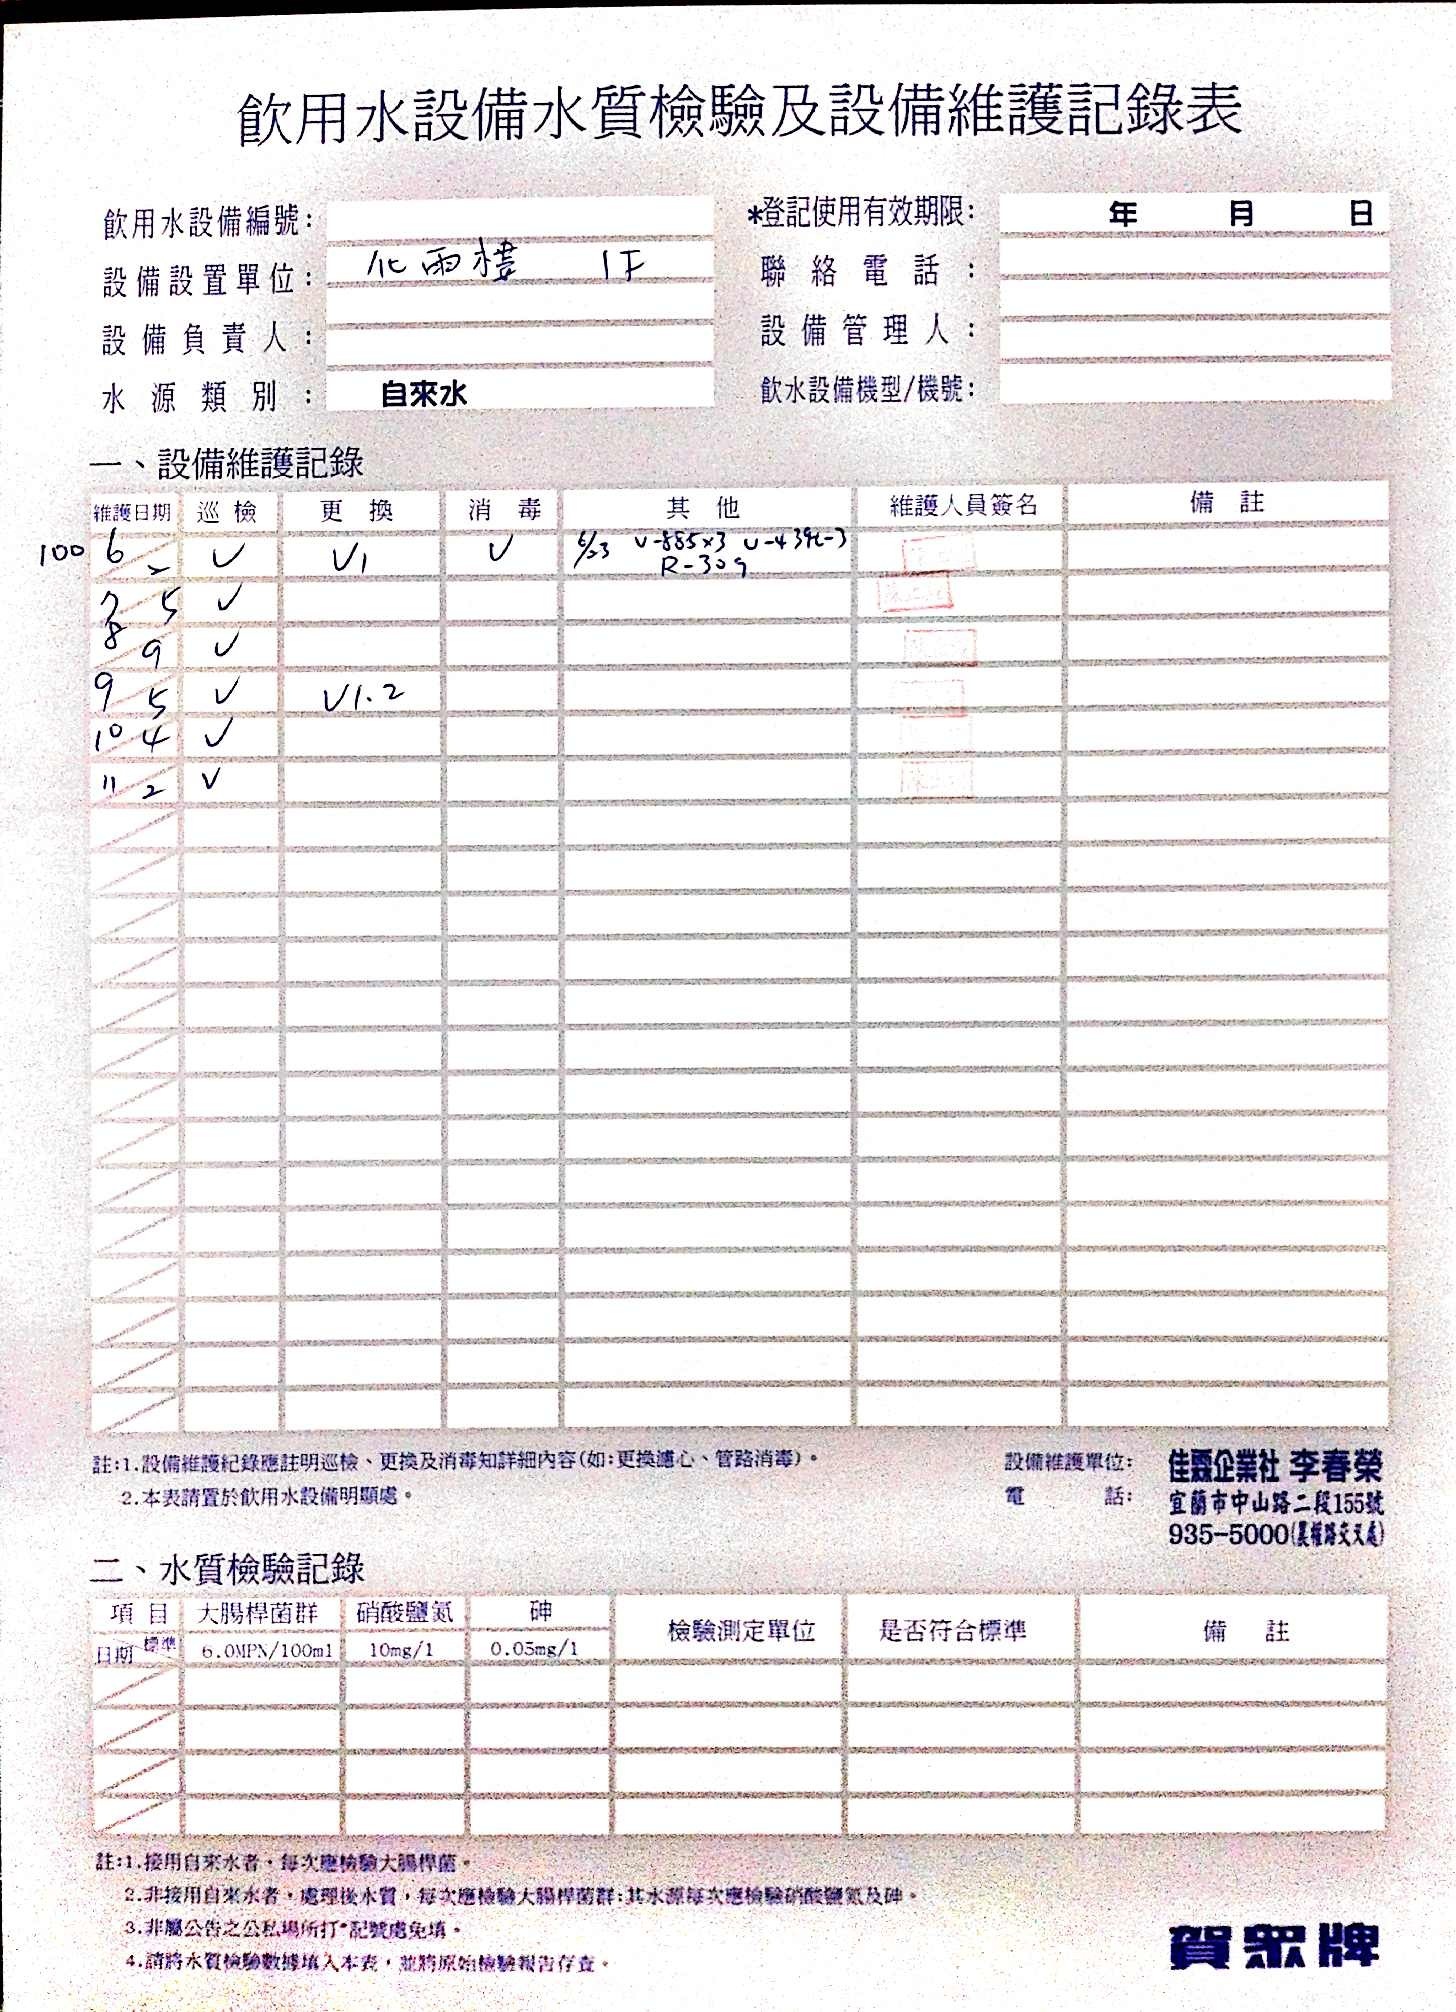 飲用水設備水質檢驗及設備維護記錄表
飲用水設備編號:
*登記使用有效期限: 年 月 日
設備設置單位: 化雨樓 1F
聯絡電話:
設備負責人:
設備管理人:
水源類別: 自來水
飲水設備機型/機號:
一、設備維護記錄
維護日期 巡檢 更換 消毒 其他 維護人員簽名 備註
100 6/2 V V1 V 6/23 U-885x3 U-439x-3
R-309
7/5 V
8/9 V
9/5 V V1.2
10/4 V
11/2 V
註:1.設備維護紀錄應註明巡檢、更換及消毒知詳細內容(如:更換濾心、管路消毒)。
2.本表請置於飲用水設備明顯處。
設備維護單位: 佳霖企業社 李春榮
電話: 宜蘭市中山路二段155號
935-5000(農權路交叉處)
二、水質檢驗記錄
項目 大腸桿菌群 硝酸鹽氮 砷 檢驗測定單位 是否符合標準 備註
日期 標準 6.0MPN/100ml 10mg/l 0.05mg/l
註:1.接用自來水者，每次應檢驗大腸桿菌。
2.非接用自來水者，處理後水質，每次應檢驗大腸桿菌群:其水源每次應檢驗硝酸鹽氮及砷。
3.非屬公告之公私場所打*記號處免填。
4.請將水質檢驗數據填入本表，並將原始檢驗報告存查。
賀眾牌